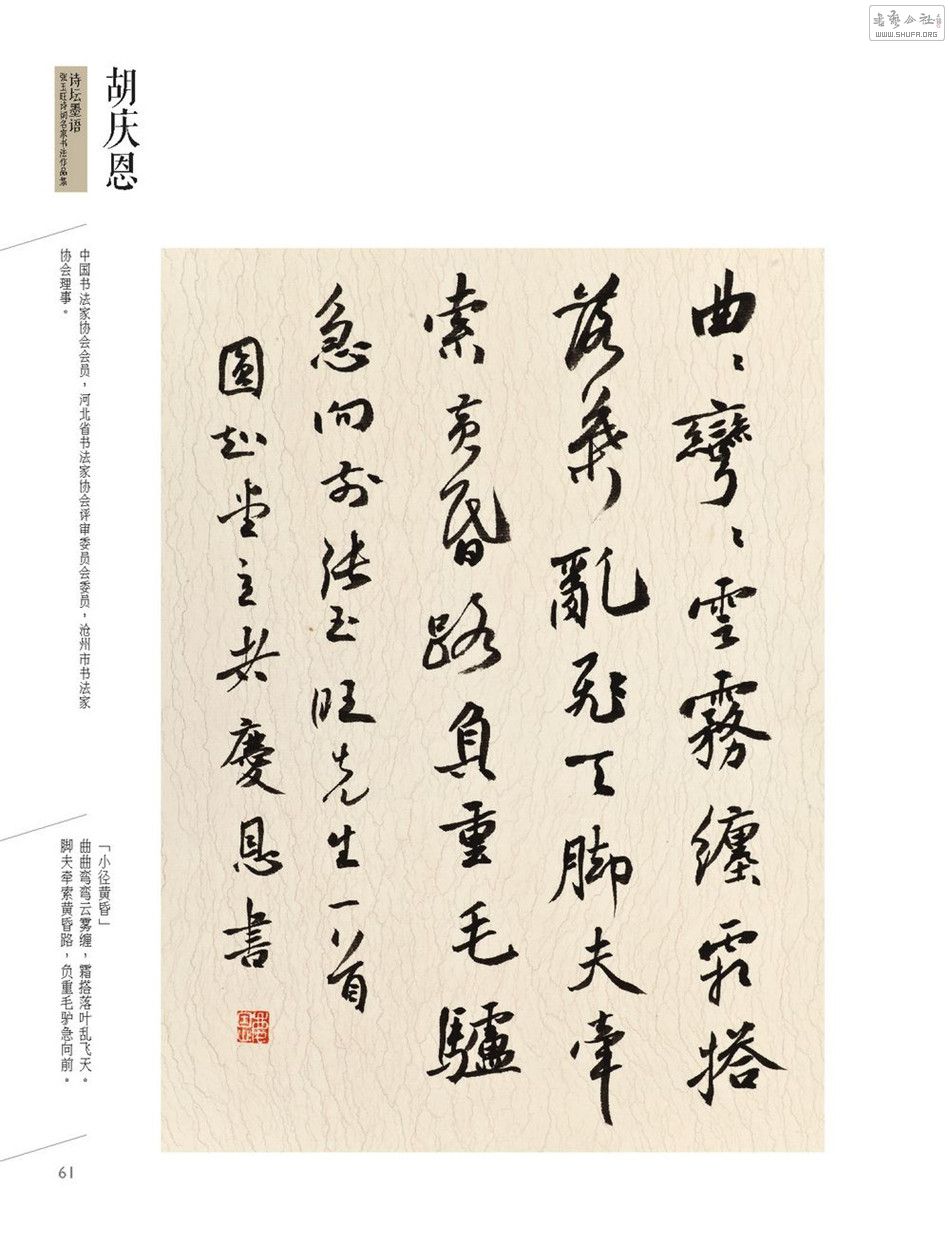 WWW.SHUFA.ORG
胡庆恩
诗坛墨语
张玉旺诗词名家书法作品集
中国书法家协会会员，河北省书法家协会评审委员会委员，沧州市书法家
协会理事。
「小径黄昏」
曲曲弯弯云雾缠，霜搭落叶乱飞天。
脚夫牵索黄昏路，负重毛驴急向前。
曲〻彎〻雲霧纏霜搭
落葉亂飛天脚夫牽
索黄昏路負重毛驢
急向前張玉旺先生一首
圓起堂主老慶恩書
61